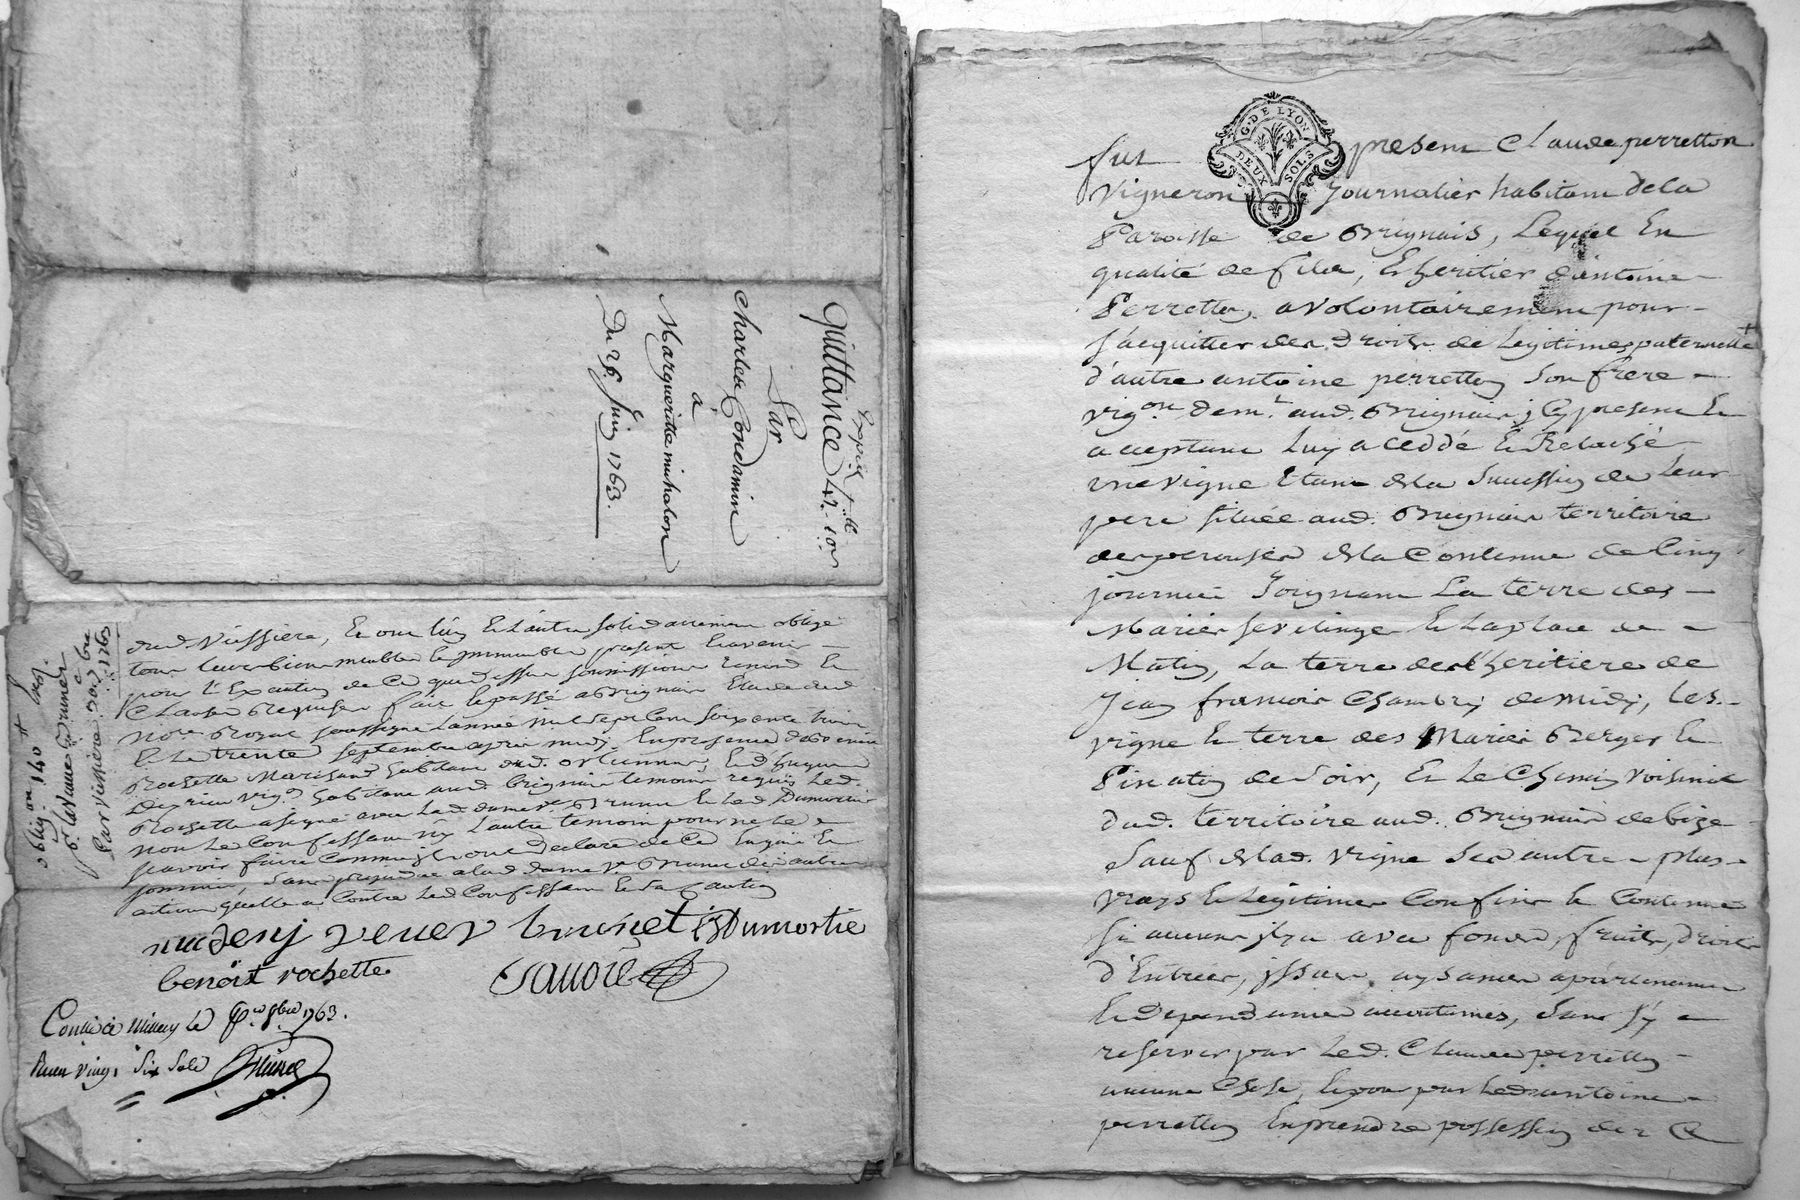 quittance 42. 10s
Par
Charles Condamin
à
Marguerite michalon
Du 26 Juin 1763.
oblig.on 140 #
pr. la Dame ve. Brunet
Par Vissiere
1763
dud Vissiere, Et ont l'un Et l'autre solidairement obligé
tous leurs biens meubles Et immeubles present Et avenir
pour l'Execution de Ce que dessus soumissions renond. Et
Clauses Requises fait Et passé a Brignais Etude dud
nore. Royal soussigné L'année mil sept Cent soixante trois
Et Le trente septembre apres midy. En presence de benoit
Rochette Marchand habitant
vig.n habitant aud brignais temoins requis Led.
Rochette a signé avec Lad dame ve Brunet Et Led Dumortier
non Le Confessant ny L'autre temoin pour ne Le
scavoir faire Comme ils ont declaré de Ce Enquis Et
sommés, sans prejudice a lad dame ve Brunet des autres
actions qu'elle a Contre Led Confessant Et sa Caution
veuev brunet Dumortie
benoit rochette
Conlé à Millery le 8bre 1763.
Reçu vingt Six Sols
G. DE LYON
DEUX SOLS
fut present Claude perretton
Vigneron Journalier habitant de la
Paroisse de Brignais, Lequel En
qualité de fils, Et heritier d'antoine
Perretton, a volontairement pour
s'acquitter des Droits de Legitimes paternelle +
d'autre antoine perretton son frere
vig.on dem.t aud. Brignais icy present Et
acceptant Luy a Ceddé Et Relaché
une vigne Etant de La Succession de Leur
pere située aud. Brignais territoire
de La Contenue de Cinq
journées Joignant La terre des
Mariés Et La place de
Matin, La terre de L'heritiere de
Jean francois Chambry de midy, les
vigne Et terre des Mariés Berger Et
Pinaton de soir, Et Le Chemin voisinal
dud. territoire aud. Brignais de bize
Sauf de Lad. vigne Ses autres plus
vrays Et Legitimes Confins Et Contenues
si aucuns il y a avec fonds, fruits, droits
d'Entrées, issues, aysances apartenances
Et Dependances accoutumés, Sans s'y
reserver par Led. Claude perretton
aucune Chose, Et pour par Led antoine
perretton En prendre possession des Ce